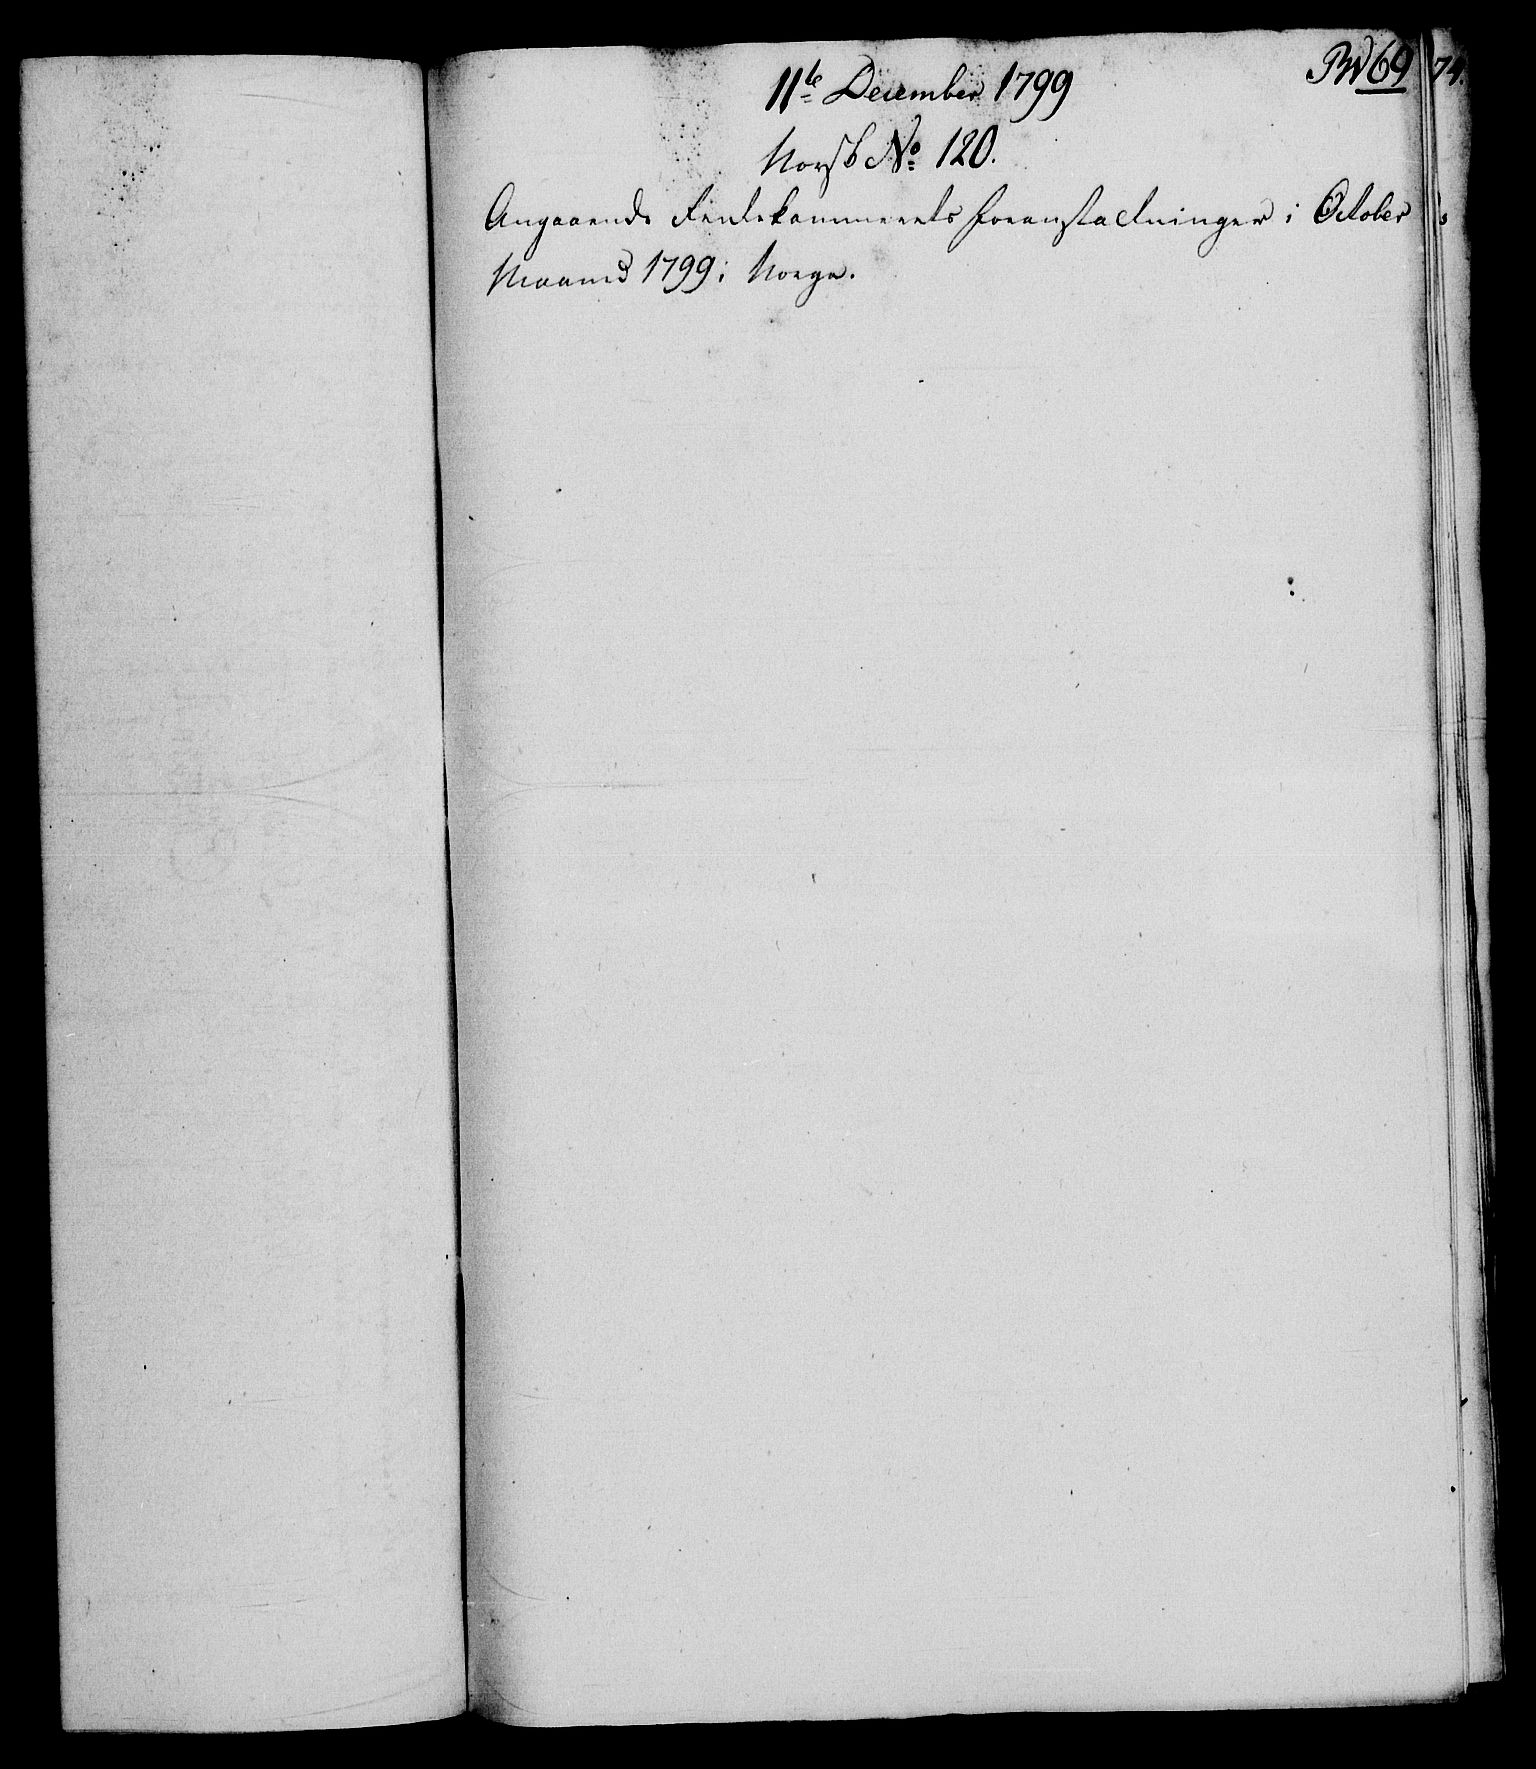 11te December 1799
Norsk No 120.
Angaaende Rentekammerets Foranstaltninger i October
Maaned 1799 i Norge.
69
74.